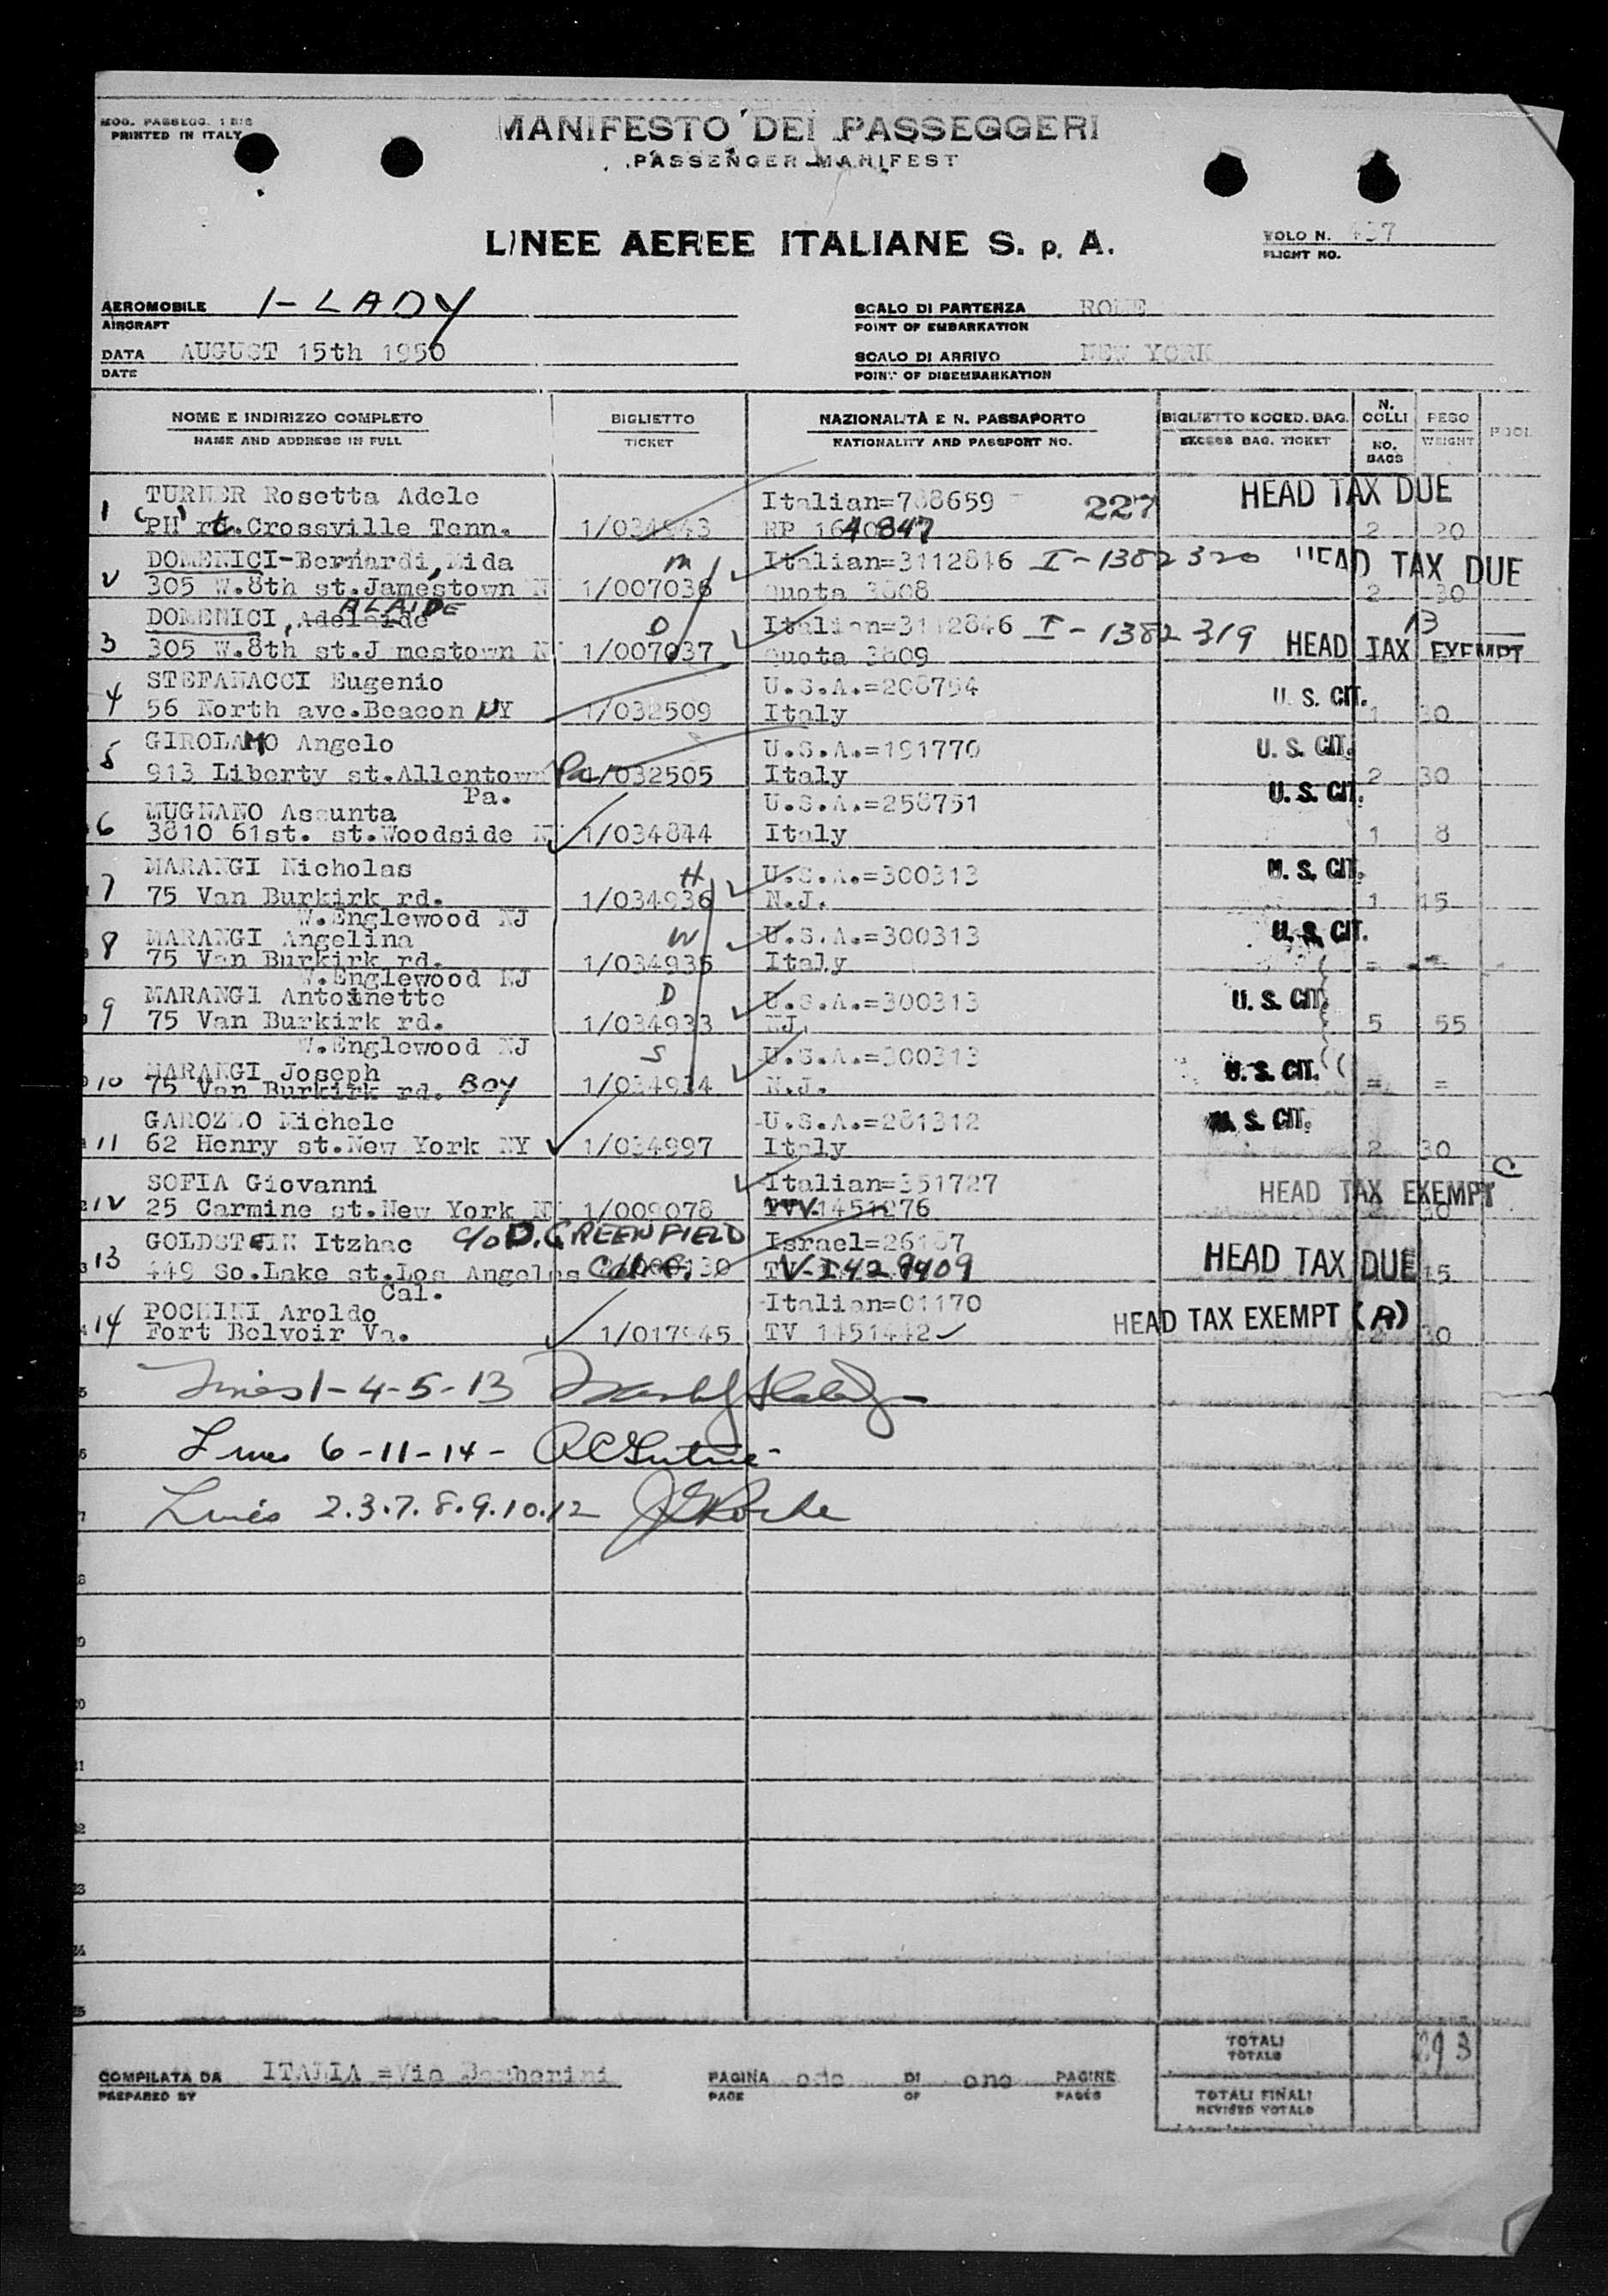 MOD. PASSEGG. 1 BIS
PRINTED IN ITALY
MANIFESTO DEI PASSEGGERI
PASSENGER MANIFEST
LINEE AEREE ITALIANE S. p. A.
VOLO N.
FLIGHT NO.
AEROMOBILE I-LADY
AIRCRAFT
SCALO DI PARTENZA ROME
POINT OF EMBARKATION
DATA AUGUST 15th 1950
DATE
SCALO DI ARRIVO NEW YORK
POINT OF DISEMBARKATION
NOME E INDIRIZZO COMPLETO BIGLIETTO NAZIONALITÀ E N. PASSAPORTO BIGLIETTO ECCED. BAG. N. COLLI PESO POOL
NAME AND ADDRESS IN FULL TICKET NATIONALITY AND PASSPORT NO. EXCESS BAG. TICKET NO. BAGS WEIGHT
TURNER Rosetta Adele Italian=788659 227 HEAD TAX DUE
1 PH rt.Crossville Tenn. 1/034943 RP 2 20
DOMENICI-Bernardi, M Italian=3112846 I-1382320 HEAD TAX DUE
2 305 W.8th st.Jamestown 1/007036 Quota 3808 2 30
DOMENICI, Adelaide ALAIDE D Italian=3112846 I-1382319 13
3 305 W.8th st.Jamestown 1/007037 Quota 3809 HEAD TAX EXEMPT
STEFANACCI Eugenio U.S.A.=208794 U. S. CIT.
4 56 North ave.Beacon NY 1/032509 Italy 1 30
GIROLAMO Angelo U.S.A.=191770 U. S. CIT.
5 913 Liberty st.Allentown Pa 1/032505 Italy 2 30
Pa.
MUGNANO Assunta U.S.A.=258751 U. S. CIT.
6 3810 61st. st.Woodside 1/034844 Italy 1 8
MARANGI Nicholas H U.S.A.=300313 U. S. CIT.
7 75 Van Burkirk rd. 1/034936 N.J. 1 15
W.Englewood NJ
MARANGI Angelina W U.S.A.=300313 U. S. CIT.
8 75 Van Burkirk rd. 1/034935 Italy = =
W.Englewood NJ
MARANGI Antoinette D U.S.A.=300313 U. S. CIT.
9 75 Van Burkirk rd. 1/034933 NJ. 5 55
W.Englewood NJ
MARANGI Joseph S U.S.A.=300313 U. S. CIT.
10 75 Van Burkirk rd. BOY 1/034934 N.J. = =
GAROZZO Michele U.S.A.=281312 U. S. CIT.
11 62 Henry st.New York NY 1/034997 Italy 2 30
SOFIA Giovanni Italian=351727 HEAD TAX EXEMPT C
12 25 Carmine st.New York 1/009078 1451276
GOLDSTEIN Itzhac c/o D. GREENFIELD Israel= HEAD TAX DUE
13 449 So.Lake st.Los Angeles V-1429409 15
Cal.
POCHINI Aroldo Italian=01170 HEAD TAX EXEMPT (A)
14 Fort Belvoir Va. 1/017945 TV 1451442 30
Lines 1-4-5-13
Lines 6-11-14-
Lines 2.3.7.8.9.10.12
TOTALI 293
TOTALS
COMPILATA DA ITALIA =Via Barberini
PREPARED BY
PAGINA one DI one PAGINE
PAGE OF PAGES
TOTALI FINALI
REVISED TOTALS